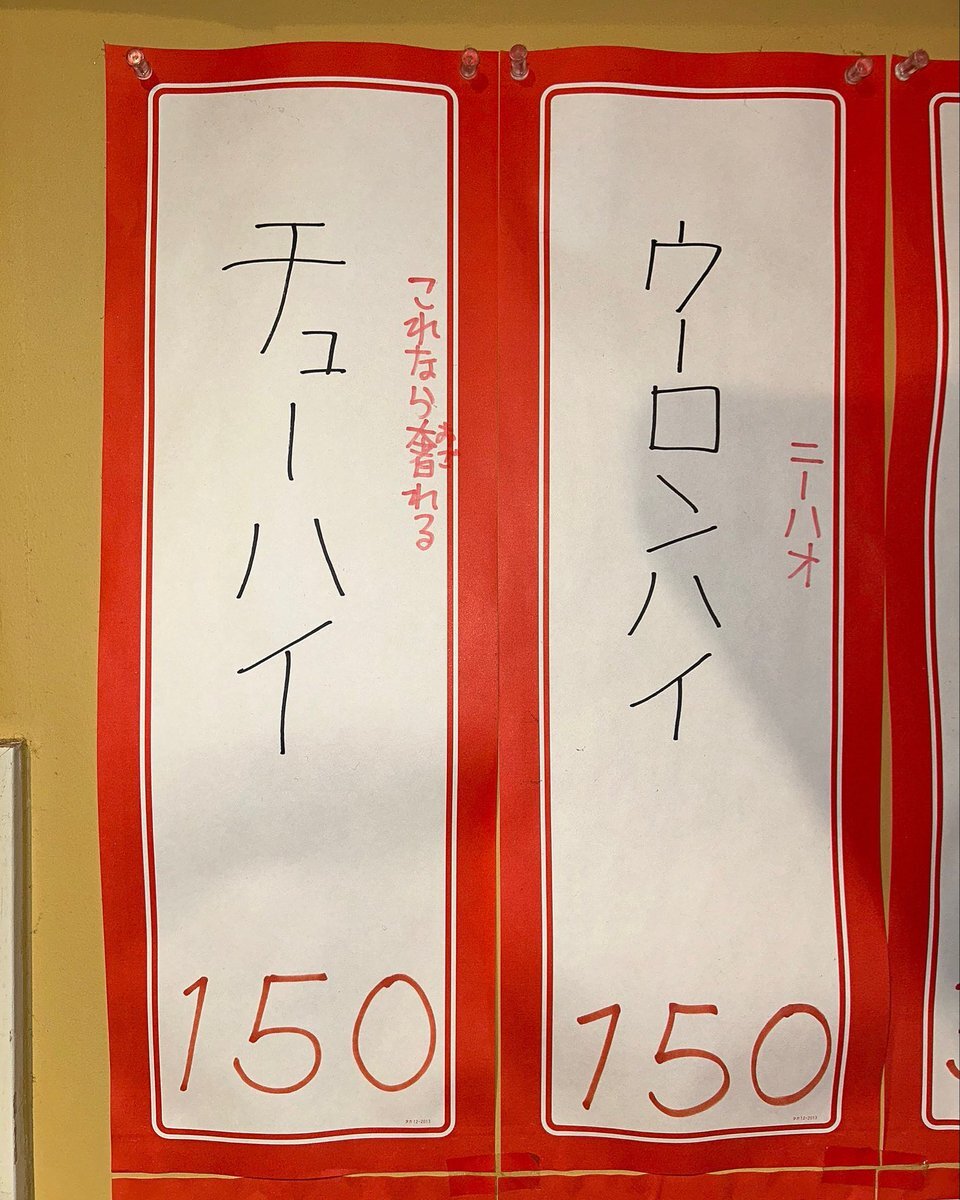 チューハイ
これなら奢れる
おご
150
ウーロンハイ
ニーハオ
150